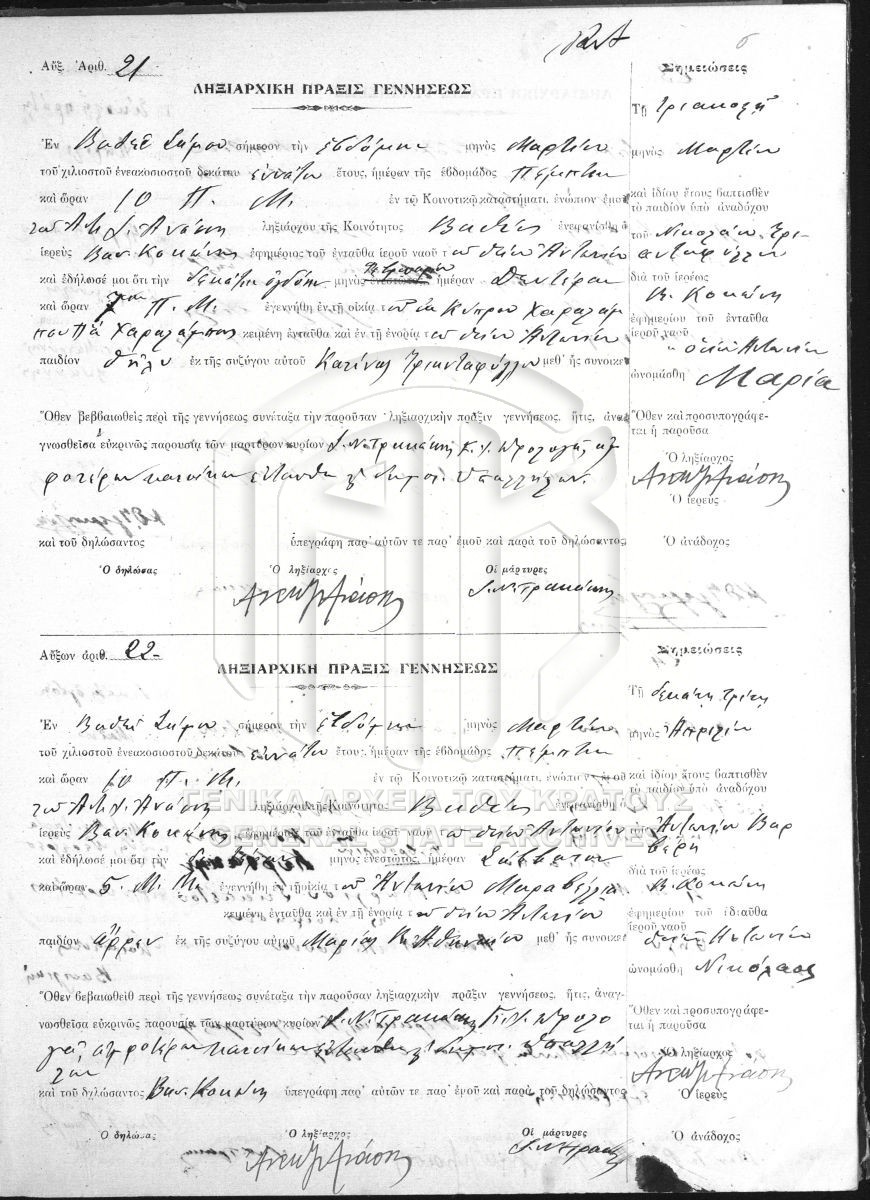 Αὔξ. Ἀριθ. 21
ΛΗΞΙΑΡΧΙΚΗ ΠΡΑΞΙΣ ΓΕΝΝΗΣΕΩΣ
Ἐν Βαθεῖ Σάμου σήμερον τὴν ἑβδόμην μηνὸς Μαρτίου
τοῦ χιλιοστοῦ ἐνεακοσιοστοῦ δεκάτου ἐννάτου ἔτους, ἡμέραν τῆς ἑβδομάδος Πέμπτην
καὶ ὥραν 10 Π. Μ. ἐν τῷ Κοινοτικῷ καταστήματι, ἐνώπιον ἐμοῦ
ληξιάρχου τῆς Κοινότητος Βαθέος ἐνεφανίσθη ὁ
ἱερεὺς Βασ. Κοκώνης ἐφημέριος τοῦ ἐνταῦθα ἱεροῦ ναοῦ τοῦ Ἁγίου Ἀντωνίου
καὶ ἐδήλωσέ μοι ὅτι τὴν δεκάτην ὀγδόην μηνὸς Φεβρουαρίου ἡμέραν Δευτέραν
καὶ ὥραν Π. Μ. ἐγεννήθη ἐν τῇ οἰκίᾳ τοῦ ἐκ Κύπρου Χαραλάμ
που Χαραλάμπους κειμένῃ ἐνταῦθα καὶ ἐν τῇ ἐνορίᾳ τοῦ Ἁγίου Ἀντωνίου
παιδίον θῆλυ ἐκ τῆς συζύγου αὐτοῦ Κατίνας Τριανταφύλλου μεθ' ἧς συνοικεῖ
Ὅθεν βεββαιωθεὶς περὶ τῆς γεννήσεως συνέταξα τὴν παροῦσαν ληξιαρχικὴν πρᾶξιν γεννήσεως, ἥτις, ἀνα
γνωσθεῖσα εὐκρινῶς παρουσίᾳ τῶν μαρτύρων κυρίων Ι. Ν. Τρακάκη ἀμ
φοτέρων κατοίκων ἐνταῦθα Δημοτ. Ὑπαλλήλων
καὶ τοῦ δηλώσαντος ὑπεγράφη παρ' αὐτῶν τε παρ' ἐμοῦ καὶ παρὰ τοῦ δηλώσαντος.
Ὁ δηλώσας Ὁ ληξίαρχος Οἱ μάρτυρες
Ι. Ν. Τρακάκης
Σημειώσεις
Τῇ τριακοστῇ
μηνὸς Μαρτίου
καὶ ἰδίου ἔτους βαπτισθὲν
τὸ παιδίον ὑπὸ ἀναδόχου
τοῦ Νικολάου Τρι
ανταφύλλου
διὰ τοῦ ἱερέως
Β. Κοκώνη
ἐφημερίου τοῦ ἐνταῦθα
ἱεροῦ ναοῦ
Ἁγίου Ἀντωνίου
ὠνομάσθη Μαρία
Ὅθεν καὶ προσυπογράφε-
ται ἡ παροῦσα
Ὁ ληξίαρχος
Ὁ ἱερεὺς
Ὁ ἀνάδοχος
Αὔξων ἀριθ. 22
ΛΗΞΙΑΡΧΙΚΗ ΠΡΑΞΙΣ ΓΕΝΝΗΣΕΩΣ
Ἐν Βαθεῖ Σάμου σήμερον τὴν ἑβδόμην μηνὸς Μαρτίου
τοῦ χιλιοστοῦ ἐνεακοσιοστοῦ δεκάτου ἐννάτου ἔτους, ἡμέραν τῆς ἑβδομάδος Πέμπτην
καὶ ὥραν 10 Π. Μ. ἐν τῷ Κοινοτικῷ καταστήματι, ἐνώπιον ἐμοῦ
ληξιάρχου τῆς Κοινότητος Βαθέος ἐνεφανίσθη ὁ
ἱερεὺς Βασ. Κοκώνης ἐφημέριος τοῦ ἐνταῦθα ἱεροῦ ναοῦ τοῦ Ἁγίου Ἀντωνίου
καὶ ἐδήλωσέ μοι ὅτι τὴν μηνὸς ἐνεστῶτος, ἡμέραν Σάββατον
καὶ ὥραν 5. Μ. Μ. ἐγεννήθη ἐν τῇ οἰκίᾳ τοῦ Ἀντωνίου
κειμένῃ ἐνταῦθα καὶ ἐν τῇ ἐνορίᾳ τοῦ Ἁγίου Ἀντωνίου
παιδίον ἄρρεν ἐκ τῆς συζύγου αὐτοῦ Μαρίας Κ. Ἀθηναίου μεθ' ἧς συνοικεῖ
Ὅθεν βεβαιωθεὶθ περὶ τῆς γεννήσεως συνέταξα τὴν παροῦσαν ληξιαρχικὴν πρᾶξιν γεννήσεως, ἥτις, ἀναγ-
νωσθεῖσα εὐκρινῶς παρουσίᾳ τῶν μαρτύρων κυρίων Ι. Ν. Τρακάκη
ἀμφοτέρων κατοίκων ἐνταῦθα Δημοτ. Ὑπαλλή
λων
καὶ τοῦ δηλώσαντος Βασ. Κοκώνη ὑπεγράφη παρ' αὐτῶν τε παρ' ἐμοῦ καὶ παρὰ τοῦ δηλώσαντος
Ὁ δηλώσας Ὁ ληξίαρχος Οἱ μάρτυρες
Σημειώσεις
Τῇ δεκάτῃ τρίτῃ
μηνὸς Ἀπριλίου
καὶ ἰδίου ἔτους βαπτισθὲν
τὸ παιδίον ὑπὸ ἀναδόχου
Ἀντωνίου
διὰ τοῦ ἱερέως
Β. Κοκώνη
ἐφημερίου τοῦ ἐνταῦθα
ἱεροῦ ναοῦ
Ἁγίου Ἀντωνίου
ὠνομάσθη Νικόλαος
Ὅθεν καὶ προσυπογράφε-
ται ἡ παροῦσα
Ὁ ληξίαρχος
Ὁ ἱερεὺς
Ὁ ἀνάδοχος
ΓΕΝΙΚΑ ΑΡΧΕΙΑ ΤΟΥ ΚΡΑΤΟΥΣ
GENERAL STATE ARCHIVES